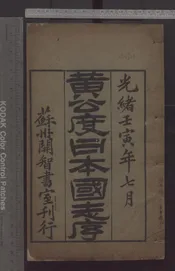 光緒壬寅年七月
黃公度日本國志序
蘇州開智書室刊行
KODAK Color Control Patches